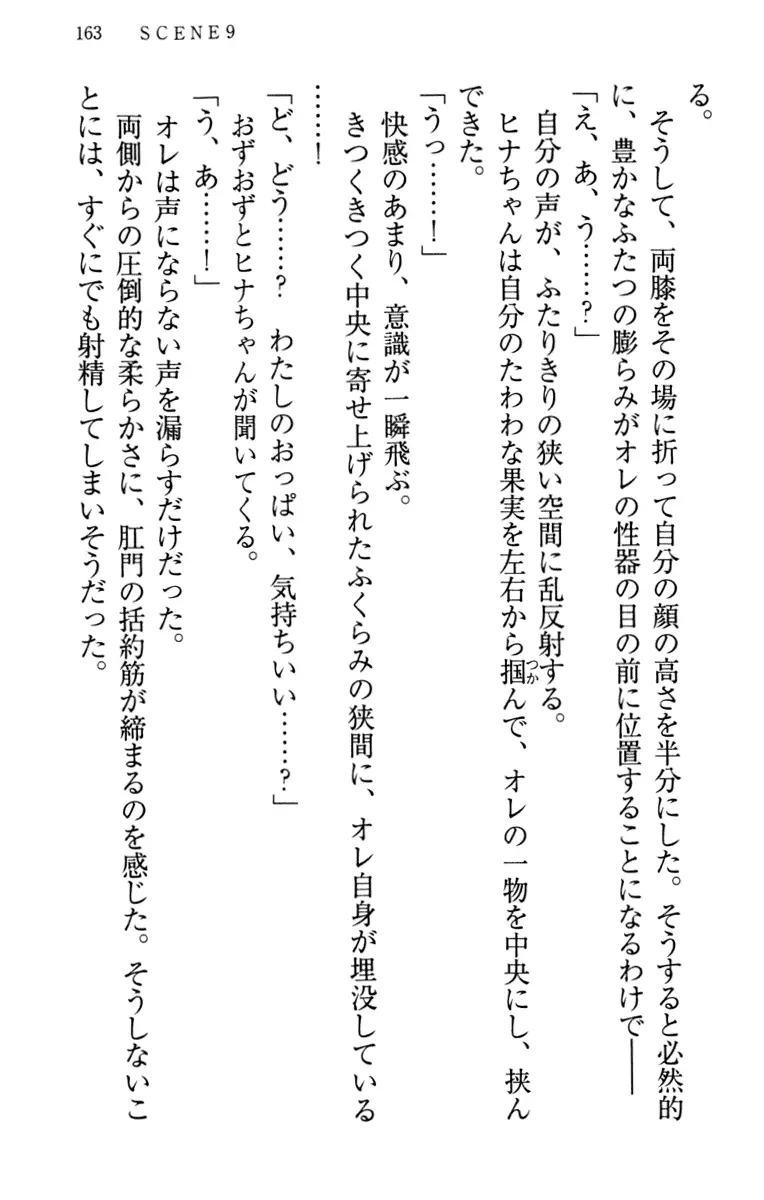 163　SCENE 9
る。
　そうして、両膝をその場に折って自分の顔の高さを半分にした。そうすると必然的
に、豊かなふたつの膨らみがオレの性器の目の前に位置することになるわけで――
「え、あ、う……？」
　自分の声が、ふたりきりの狭い空間に乱反射する。
　ヒナちゃんは自分のたわわな果実を左右から掴んで、オレの一物を中央にし、挟ん
できた。
「うっ……！」
　快感のあまり、意識が一瞬飛ぶ。
　きつくきつく中央に寄せ上げられたふくらみの狭間に、オレ自身が埋没している
……！
「ど、どう……？　わたしのおっぱい、気持ちいい……？」
　おずおずとヒナちゃんが聞いてくる。
「う、あ……！」
　オレは声にならない声を漏らすだけだった。
　両側からの圧倒的な柔らかさに、肛門の括約筋が締まるのを感じた。そうしないこ
とには、すぐにでも射精してしまいそうだった。